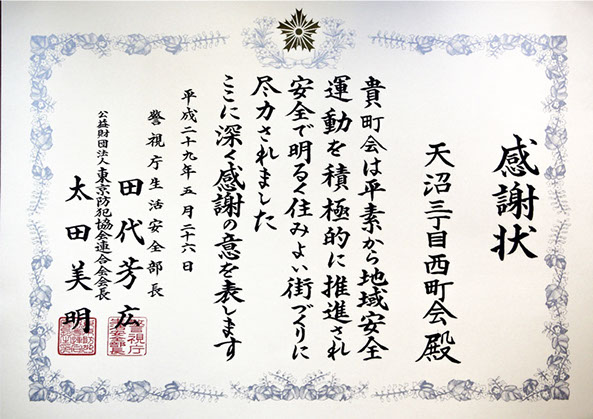 感謝状
天沼三丁目西町会殿
貴町会は平素から地域安全
運動を積極的に推進され
安全で明るく住みよい街づくりに
尽力されました
ここに深く感謝の意を表します
平成二十九年五月二十六日
警視庁生活安全部長
田代芳広
公益財団法人東京防犯協会連合会会長
太田美明